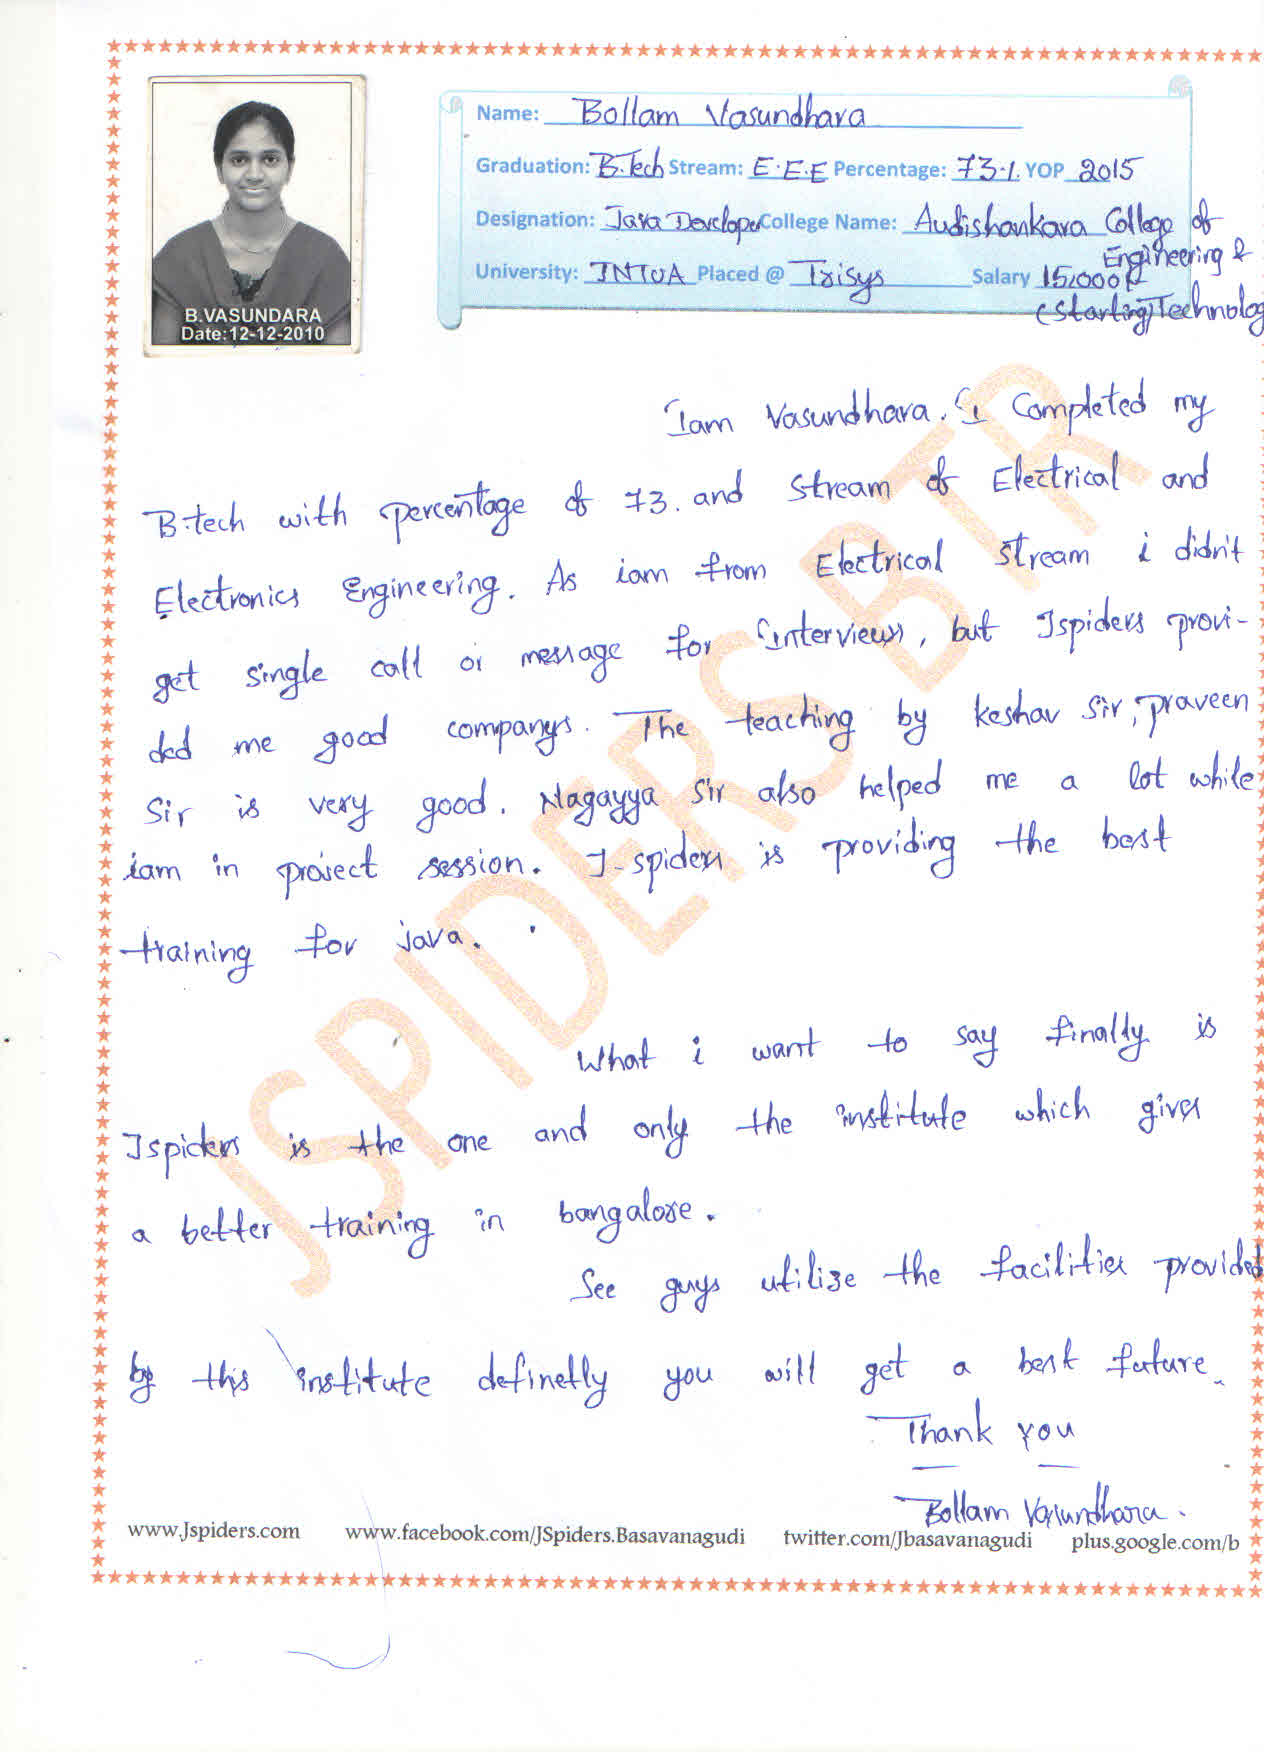 B.VASUNDARA
Date:12-12-2010
Name: Bollam Vasundhara
Graduation: B.Tech Stream: E.E.E Percentage: 73.1. YOP 2015
Designation: Java Developer College Name: Audishankara College of
Engineering &
University: JNTUA Placed @ Trisys Salary 15,000
(Starting) Technolog
Iam Vasundhara. I Completed my
B.tech with percentage of 73. and Stream of Electrical and
Electronics Engineering. As iam from Electrical Stream i didn't
get single call or message for Interviews, but Jspiders provi-
ded me good companys. The teaching by keshav Sir, praveen
Sir is very good. Nagayya Sir also helped me a lot while
iam in project session. J-spiders is providing the best
training for java.
What i want to say finally is
Jspiders is the one and only the institute which gives
a better training in bangalore.
See guys utilize the facilities provided
by this institute definetly you will get a best future.
Thank you
Bollam Vasundhara.
www.Jspiders.com www.facebook.com/JSpiders.Basavanagudi twitter.com/Jbasavanagudi plus.google.com/b
JSPIDERS BTR